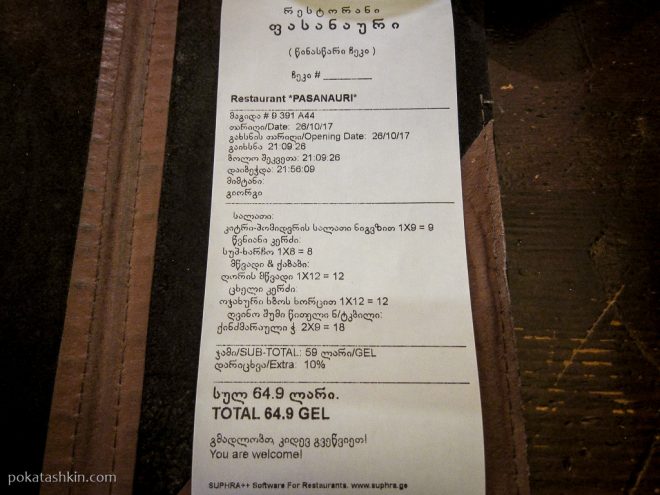 რესტორანი
ფასანაური
( წინასწარი ჩეკი )
ჩეკი # ________
Restaurant "PASANAURI"
მაგიდა # 9 391 A44
თარიღი/Date: 26/10/17
გახსნის თარიღი/Opening Date: 26/10/17
გაიხსნა 21:09:26
ბოლო შეკვეთა: 21:09:26
დაიბეჭდა: 21:56:09
მიმტანი:
გიორგი
სალათი:
კიტრი-პომიდვრის სალათი ნიგვზით 1X9 = 9
წვნიანი კერძი:
სუპ-ხარჩო 1X8 = 8
მწვადი & ქაბაბი:
ღორის მწვადი 1X12 = 12
ცხელი კერძი:
ოჯახური ხბოს ხორცით 1X12 = 12
ღვინო შუშის წითელი ნ/ტკბილი:
ქინძმარაული ჭ 2X9 = 18
ჯამი/SUB-TOTAL: 59 ლარი/GEL
დარიცხვა/Extra: 10%
სულ 64.9 ლარი.
TOTAL 64.9 GEL
გმადლობთ, კიდევ გვეწვიეთ!
You are welcome!
SUPHRA++ Software For Restaurants. www.suphra.ge
pokatashkin.com